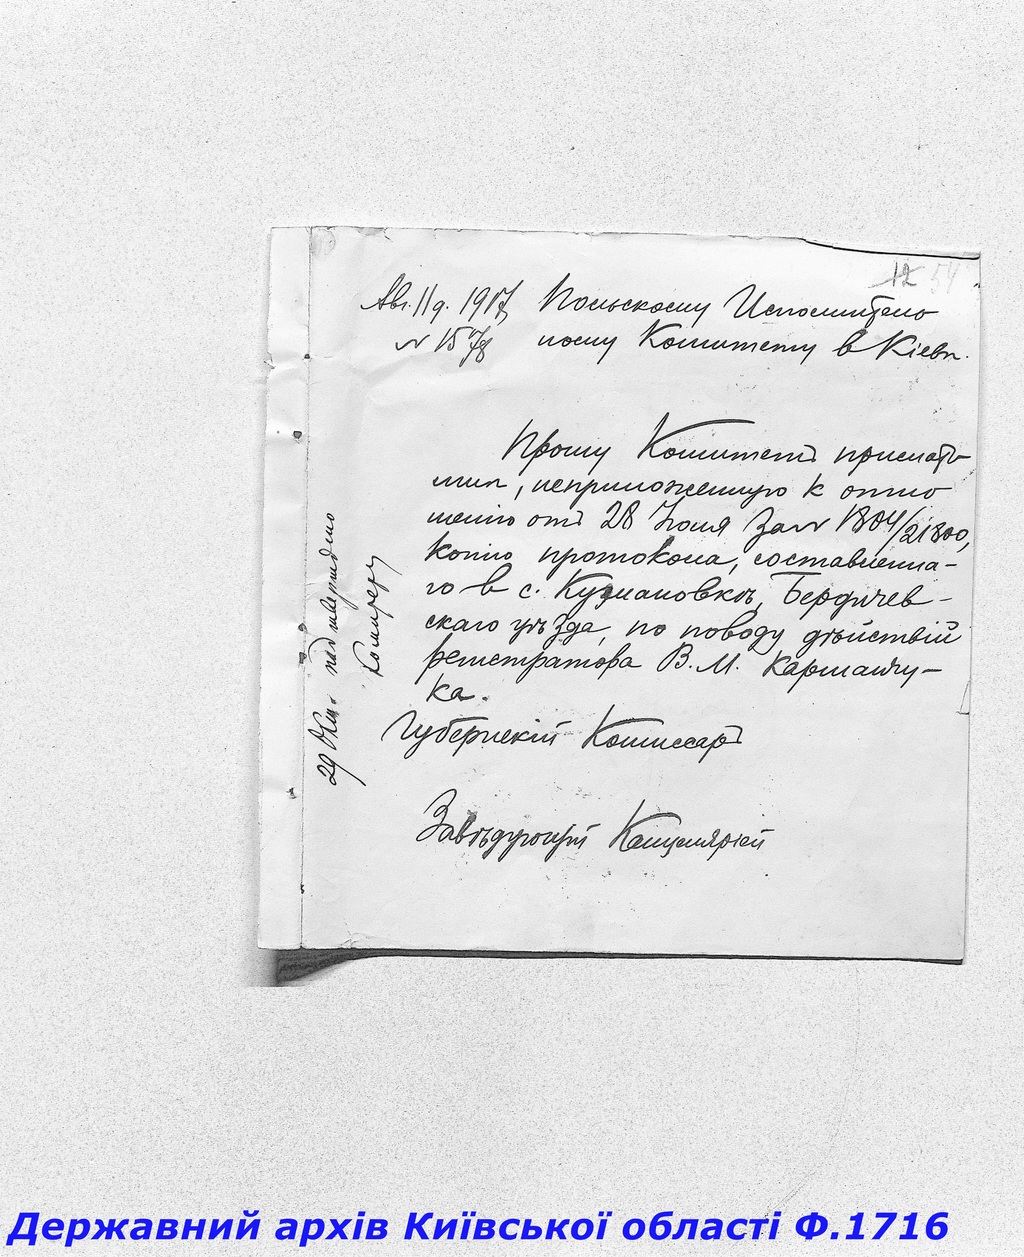 12 54
Авг. 11 д. 1917
№ 1578
Польскому Исполнитель
ному Комитету в Кіевѣ.
Прошу Комитетъ прислать
мнѣ, неприложенную к отно
шенію отъ 28 Іюля за № 1804/21800,
копію протокола, составленна-
го в с. Кузмановкѣ, Бердичев-
скаго уѣзда, по поводу дѣйствій
регистратора В. М. Карманчу-
ка.
Губернскій Комиссаръ
Завѣдующій Канцеляріей
29 Окт.
Державний архів Київської області Ф.1716